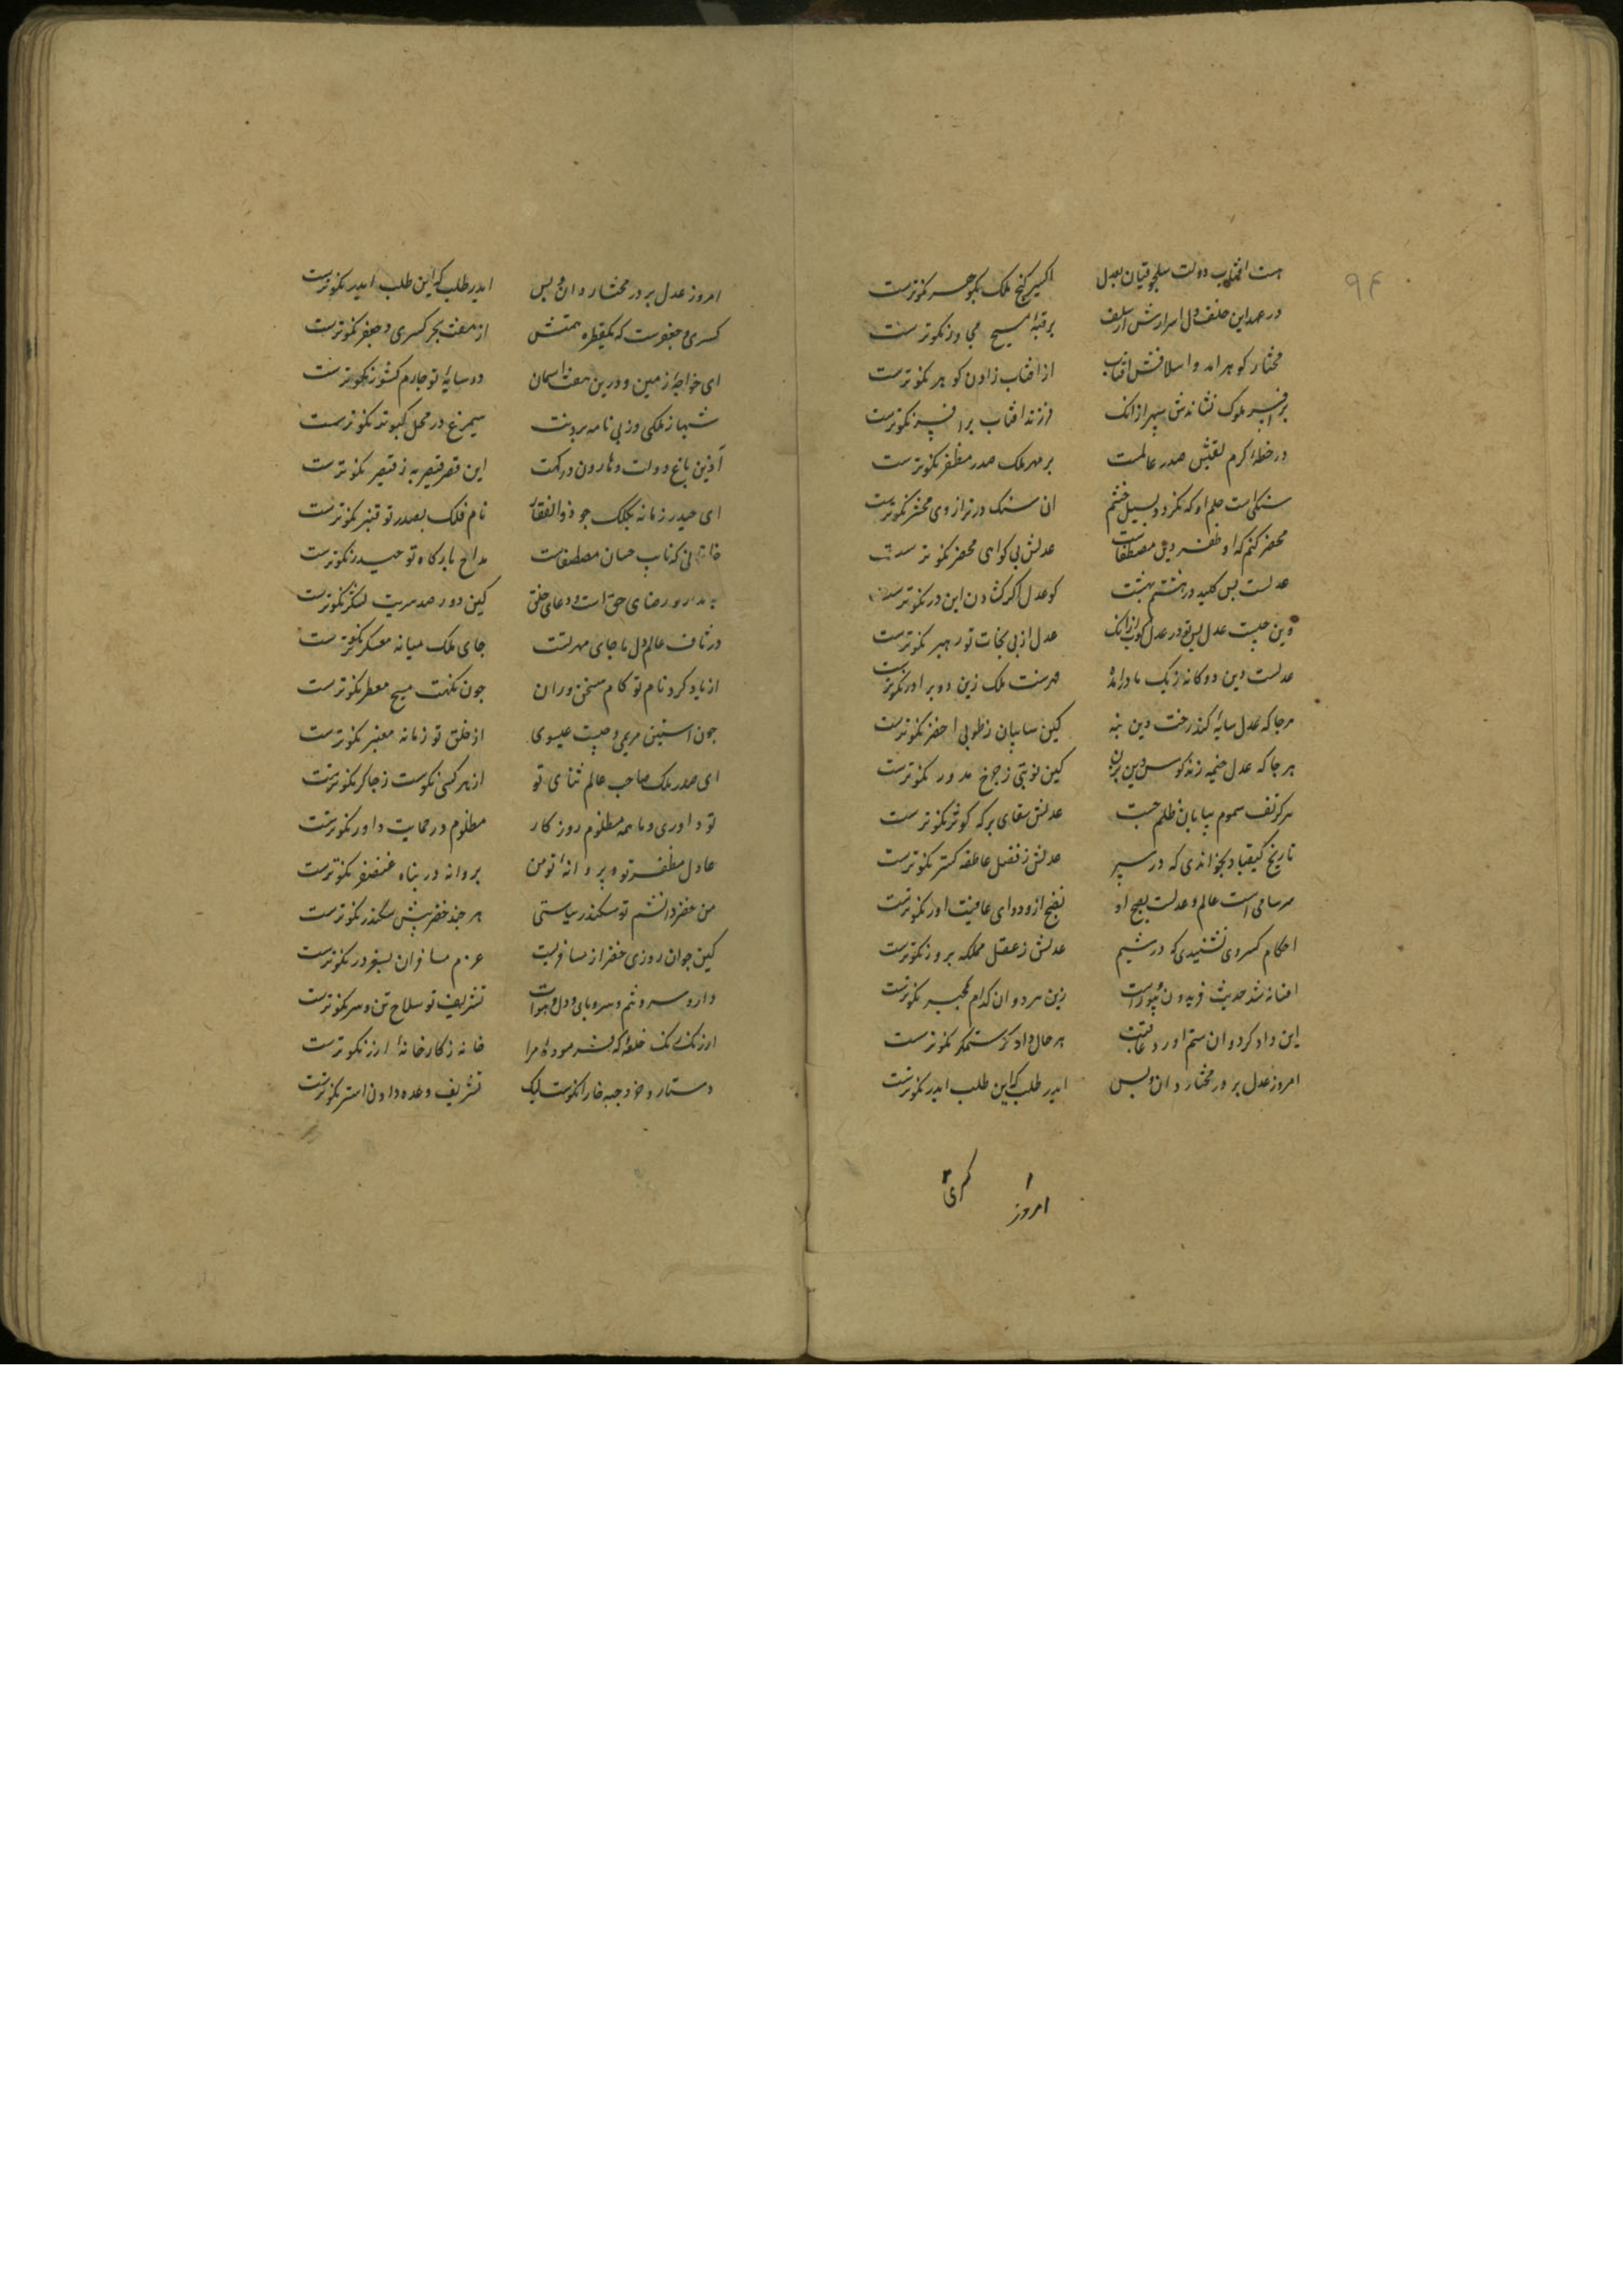 ۹۴
هست افتاب دولت سلجوقیان بعدل اکسیر کنج ملک نکوتر ست
در عهد این خلف دل اسرارش از سلف بر قبهٔ مسیح مجاور نکوتر ست
مختار کوهر امد و اسلافش افتاب از افتاب زادن کوهر نکوترست
بر افسر ملوک نشاندش سپهر ازانک فرزند افتاب بر افسر نکوترست
در خطهٔ کرم لقبش صدر عالمست بر مهر ملک صدر مظفر نکوترست
سنکی است حلم او که نکردد بسیل خشم ان سنک در ترازوی محشر نکوترست
محضر کنم که او ظفر دین مصطفاست عدلش بی کواهی محضر نکوترست
عدلست بس کلید در هشتم بهشت کو عدل اکر کشادن این در نکوترست
دین چیست عدل پس تو در عدل کوب ازانک عدل از پی نجات تو رهبر نکوترست
عدلست و دین دوکانه ز یک مادر امده فهرست ملک زین دو برادر نکوترست
هرجا که عدل سایه کند رخت دین بنه کین سایبان ز طوبی اخضر نکوترست
هرجا که عدل خیمه زند کوس دین بزن کین نوبتی ز چرخ مدور نکوترست
هرکز تف سموم بیابان ظلم جست عدلش سقای برکه کوثر نکوترست
تاریخ کیقباد بخواندی که در سیر عدلش ز فضل عاطفه کستر نکوترست
سرسامی است عالم و عدلست نضج او نضج از دوای عافیت اور نکوترست
احکام کسروی نشنیدی که در شیم عدلش ز عقل مملکه پرور نکوترست
افسانه شد حدیث فریدون و بیوراست زین هر دوان کدام بمخبر نکوترست
این داد کرد و ان ستم اورد عاقبت هرحال دادکر ز ستمکر نکوترست
امروز عدل بر در مختار دان و بس ایدر طلب که این طلب ایدر نکوترست
۱ ۲
امروز کسری
امروز عدل بر در مختار دان و بس ایدر طلب که این طلب ایدر نکوترست
کسری و جعفرست که یکقطره همتش از هفت بحر کسری و جعفر نکوترست
ای خواجهٔ زمین و درین هفت اسمان در سایهٔ تو چارم کشور نکوترست
شهباز ملکی و ز پی نامه بردنت سیمرغ در محل کبوتر نکوترست
آذین باغ دولت و هارون درکهت این قصر قیصریه ز قیصر نکوترست
ای حیدر زمانه بکلک چو ذوالفقار نام فلک بصدر تو قنبر نکوترست
خاقانی که نایب حسان مصطفاست مداح بارکاه تو حیدر نکوترست
بدار و رضای حق است و دعای خلق کین دو ز صد سریت لشکر نکوترست
در ناف عالم دل ما جای مهر تست جای ملک میانه معسکر نکوترست
از یاد کرد نام تو کام سخن وران چون نکهت مسیح معطر نکوترست
چون استین مریم و جیب عیسوی از خلق تو زمانه معنبر نکوترست
ای صدر ملک صاحب عالم ثنای تو از هر کسی نکوست ز چاکر نکوترست
تو داوری و ما همه مظلوم روزکار مظلوم در حمایت داور نکوترست
عادل مظفر تو و پروانهٔ تو من پروانه در پناه غضنفر نکوترست
من خضر دانشم تو سکندر سیاستی هرچند خضر پیش سکندر نکوترست
کین جوان روزی خضر از مسافریست عزم مسافران بسفر در نکوترست
دارو سر و تنم و سر و پای و دل و هوات تشریف تو سلاح تن و سر نکوترست
ارژنک رنک خلعه که فرمودهٔ مرا خانه ز کارخانهٔ ارزنکوترست
دستار و خز و جبه خارا نکوست لیک تشریف وعده دادن استر نکوترست